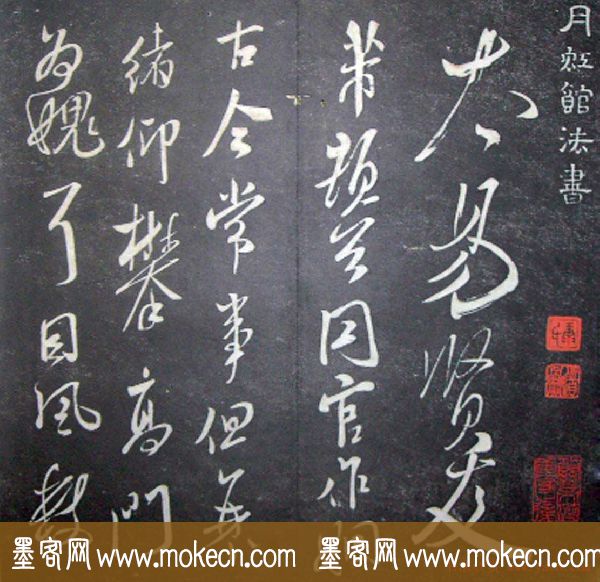 月虹館法書
大易賢友
芾頓首同官作
古今常事但
緒仰攀高門
為愧耳因風
墨客网 www.mokecn.com 墨客网 www.mokecn.com